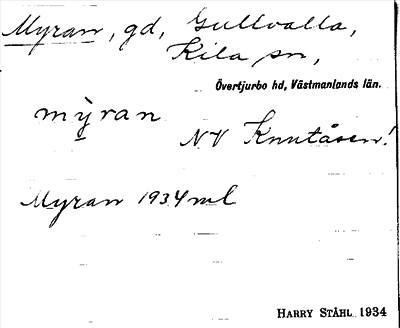 Myran, gd, Gullvalla,
Kila sn,
Övertjurbo hd, Västmanlands län.
mỳran
NV Knutåsen!
Myran 1934 ml
HARRY STÅHL 1934